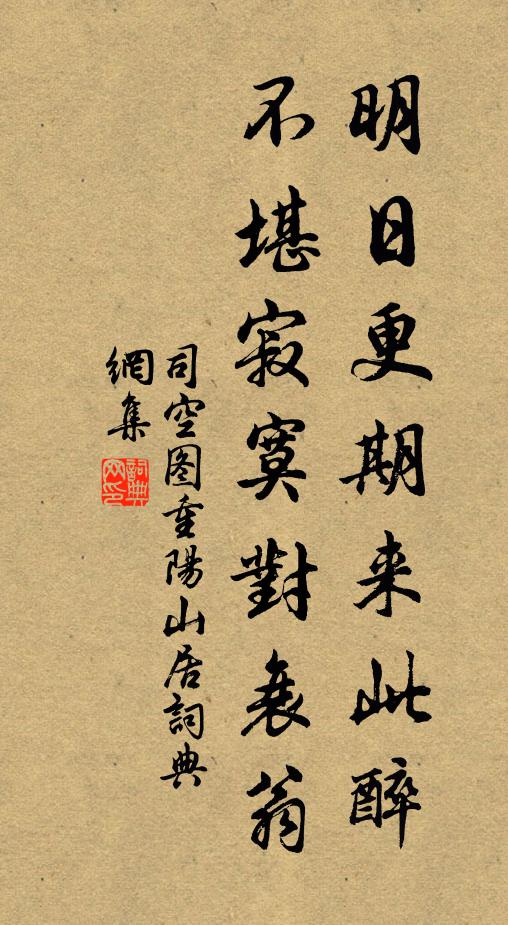 明日更期来此醉
不堪寂寞對衰翁
司空图重陽山居詞典
網集
詞典
网印